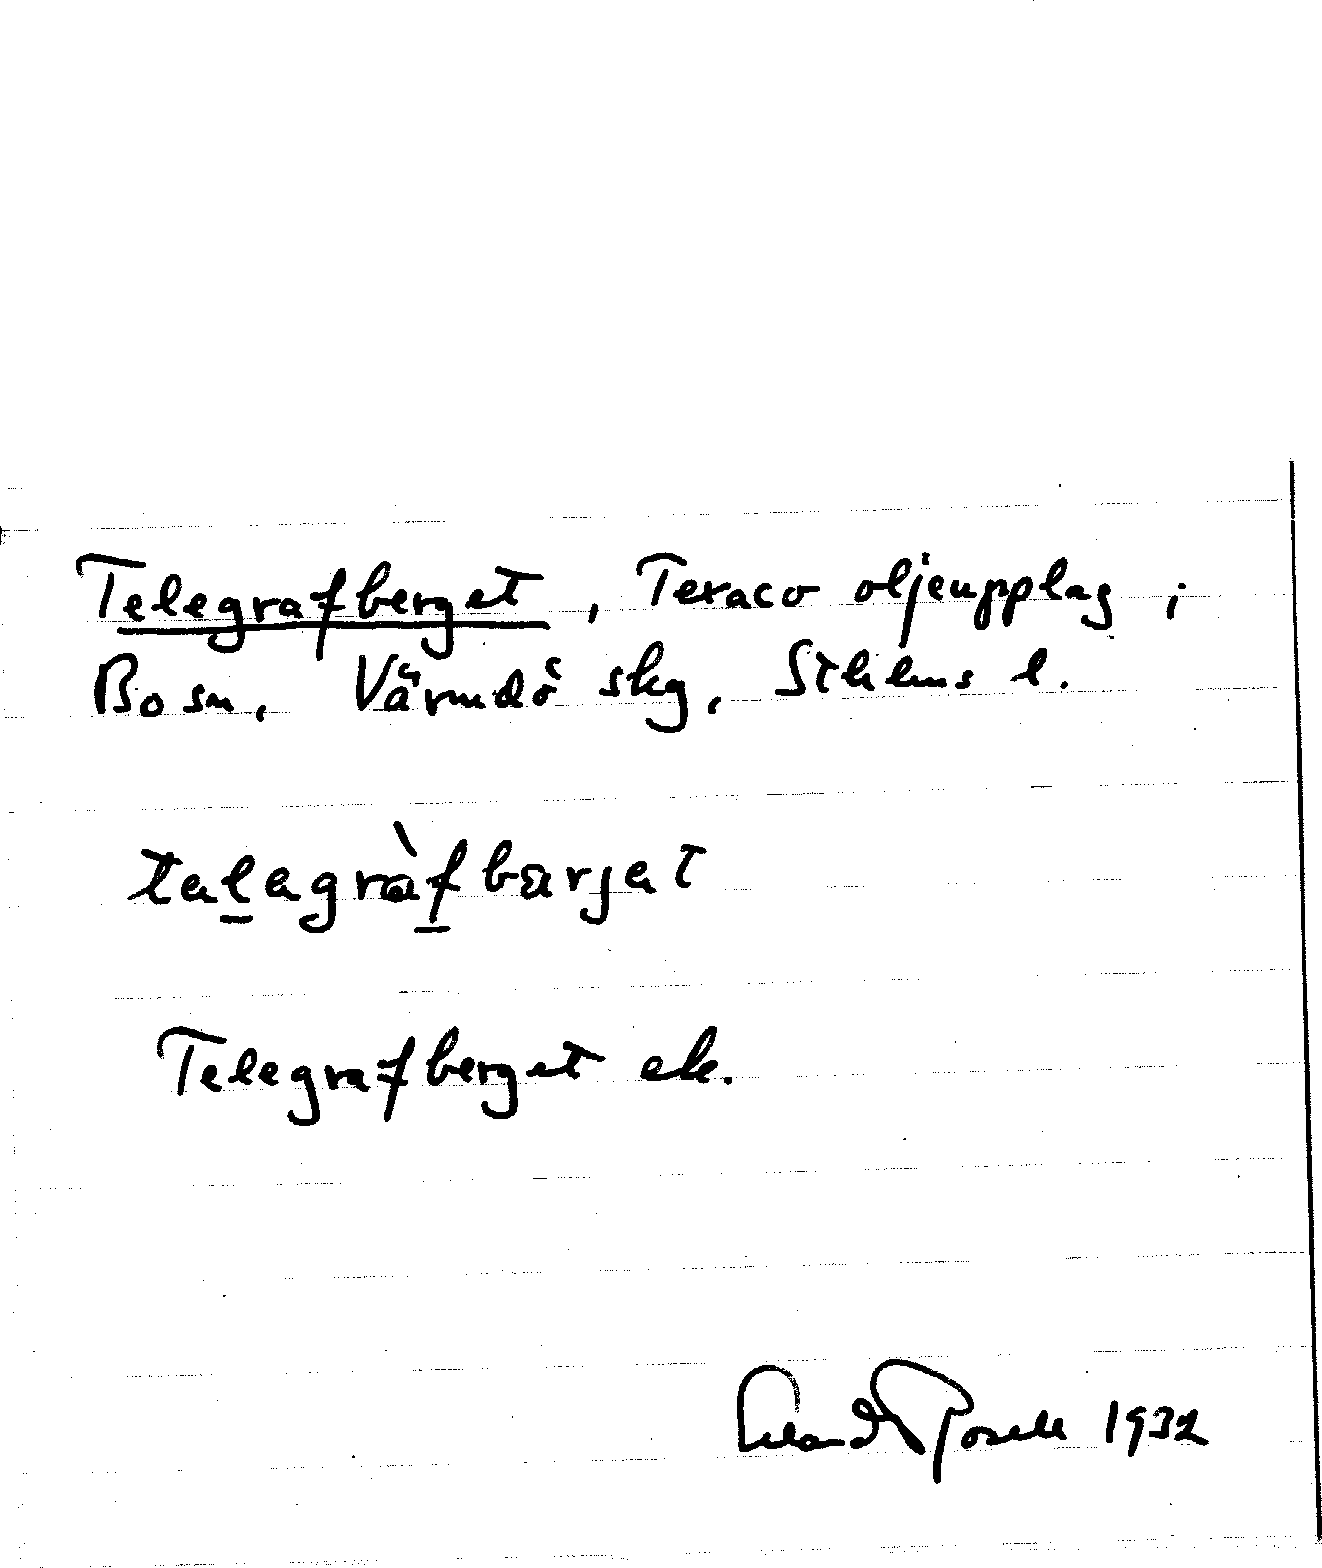 Telegrafberget, Texaco oljeupplag;
Bo sn, Värmdö skg, Sthlms l.
talagràfbärjat
Telegrafberget ek.
Erland Rosell 1932